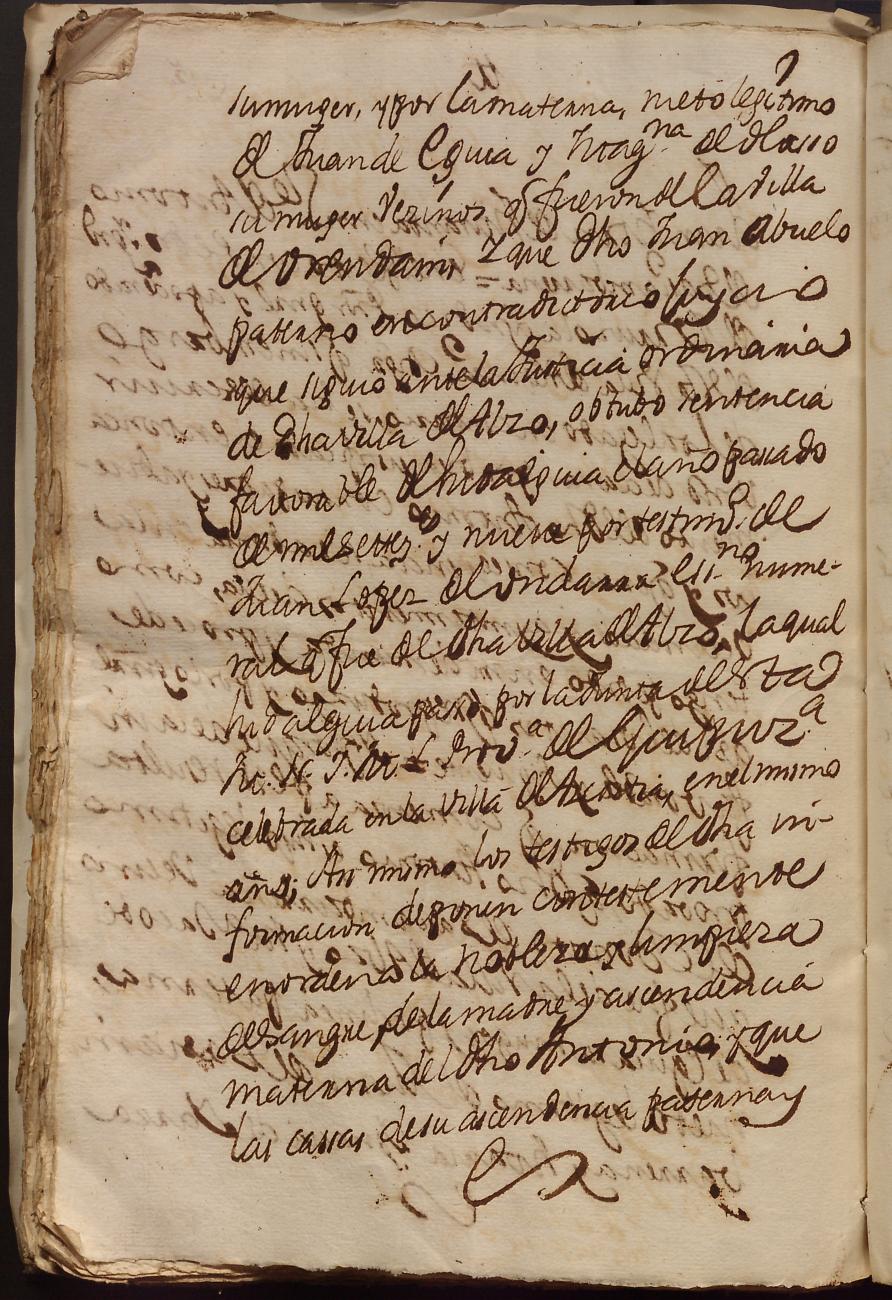 su muger, y por la materna, nieto legitimo
de Juan de Eguia y Mag.na de Olasso
su muger vezinos q̃ fueron de la villa
de Orendain, Y que dho Juan Abuelo
paterno en contradictorio Juycio
que siguio ante la Justicia ordinaria
de dha Villa de Abzo, obtubo sentencia
favorable de hidalguia el año pasado
de mil settez.os y nueve por testim.o de
Juan Lopez de ss.no nume-
ral q̃ fue de dha Villa de Abzo, la qual
hidalguia pasò por la Junta de Esta
M. N. Y. M. L. Prov.a de Guipuzc.a
celebrada en la Villa de Azcoitia, en el mismo
año; Assi mismo los testigos de dha in-
formacion deponen contestemente
en orden a la Nobleza y limpieza
de sangre, de la madre y ascendencia
materna del dho Antonio, y que
las cassas de su ascendencia paterna y